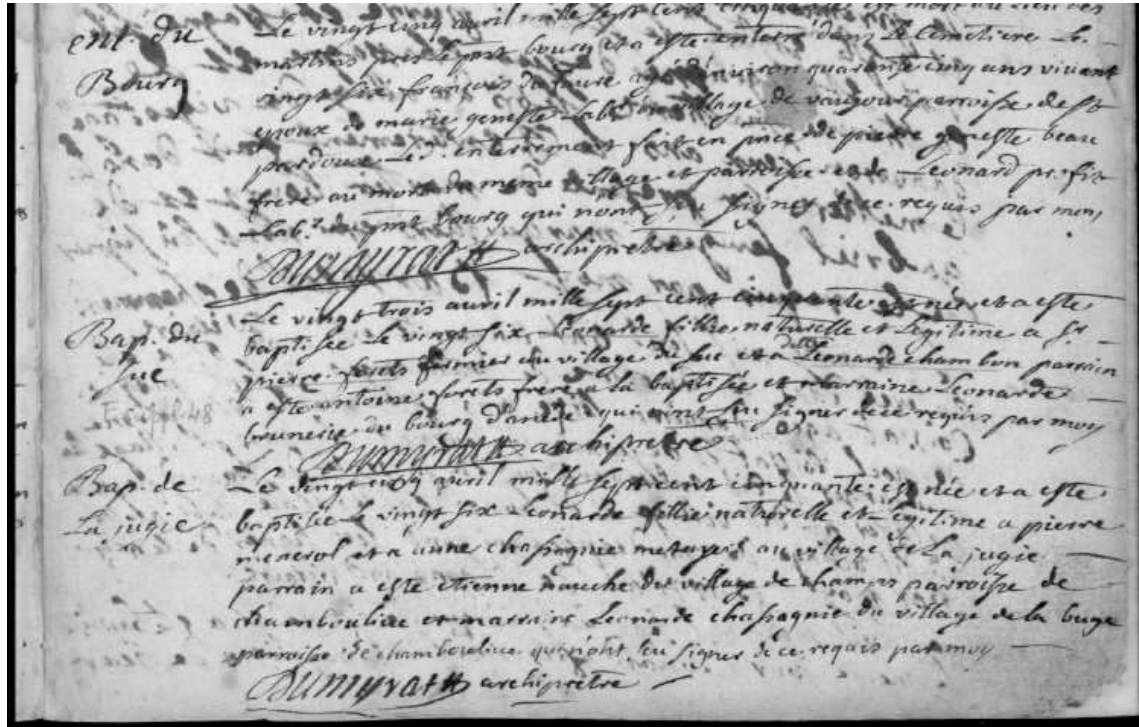 ent. du
Bourg
Le vingt cinq avril mille sept cent cinquante est mort au lieu des
martins près le pnt bourg et a este enterré dans Le Cemetiere Le
vingt six françois du faure agé d'environ quarante cinq ans vivant
epoux de marie geneste Labr. au village de vaujour parroisse de st
pardoux Le d. enterrement fait en pnce de pierre geneste beau
frere au mort du meme village et parroisse et de Leonard
Labr. du pnt bourg qui n'ont sçu signer de ce requis par moy
Dumyrat archiprêtre
Bap. du
suc
Le vingt trois avril mille sept cent cinquante est née et a este
baptisée Le vingt six Leonarde fillie naturelle et Legitime a sr
pierre forets fermier du village du suc et a dlle Leonarde chambon parrain
a este antoine forets frere a la baptisée et marraine Leonarde
brunerie du bourg qui n'ont sçu signer de ce requis par moy
Dumyrat archiprestre
Bap. de
La jugie
Le vingt cinq avril mille sept cent cinquante est née et a este
baptisée Le vingt six Leonarde fillie naturelle et Legitime a pierre
et a anne chassagnie metayers au village de La jugie
parrain a este etienne mauche du village de champs parroisse de
chamboulive et marraine Leonarde chassagnie du village de la buge
parroisse de chamboulive qui n'ont sçu signer de ce requis par moy
Dumyrat archiprêtre